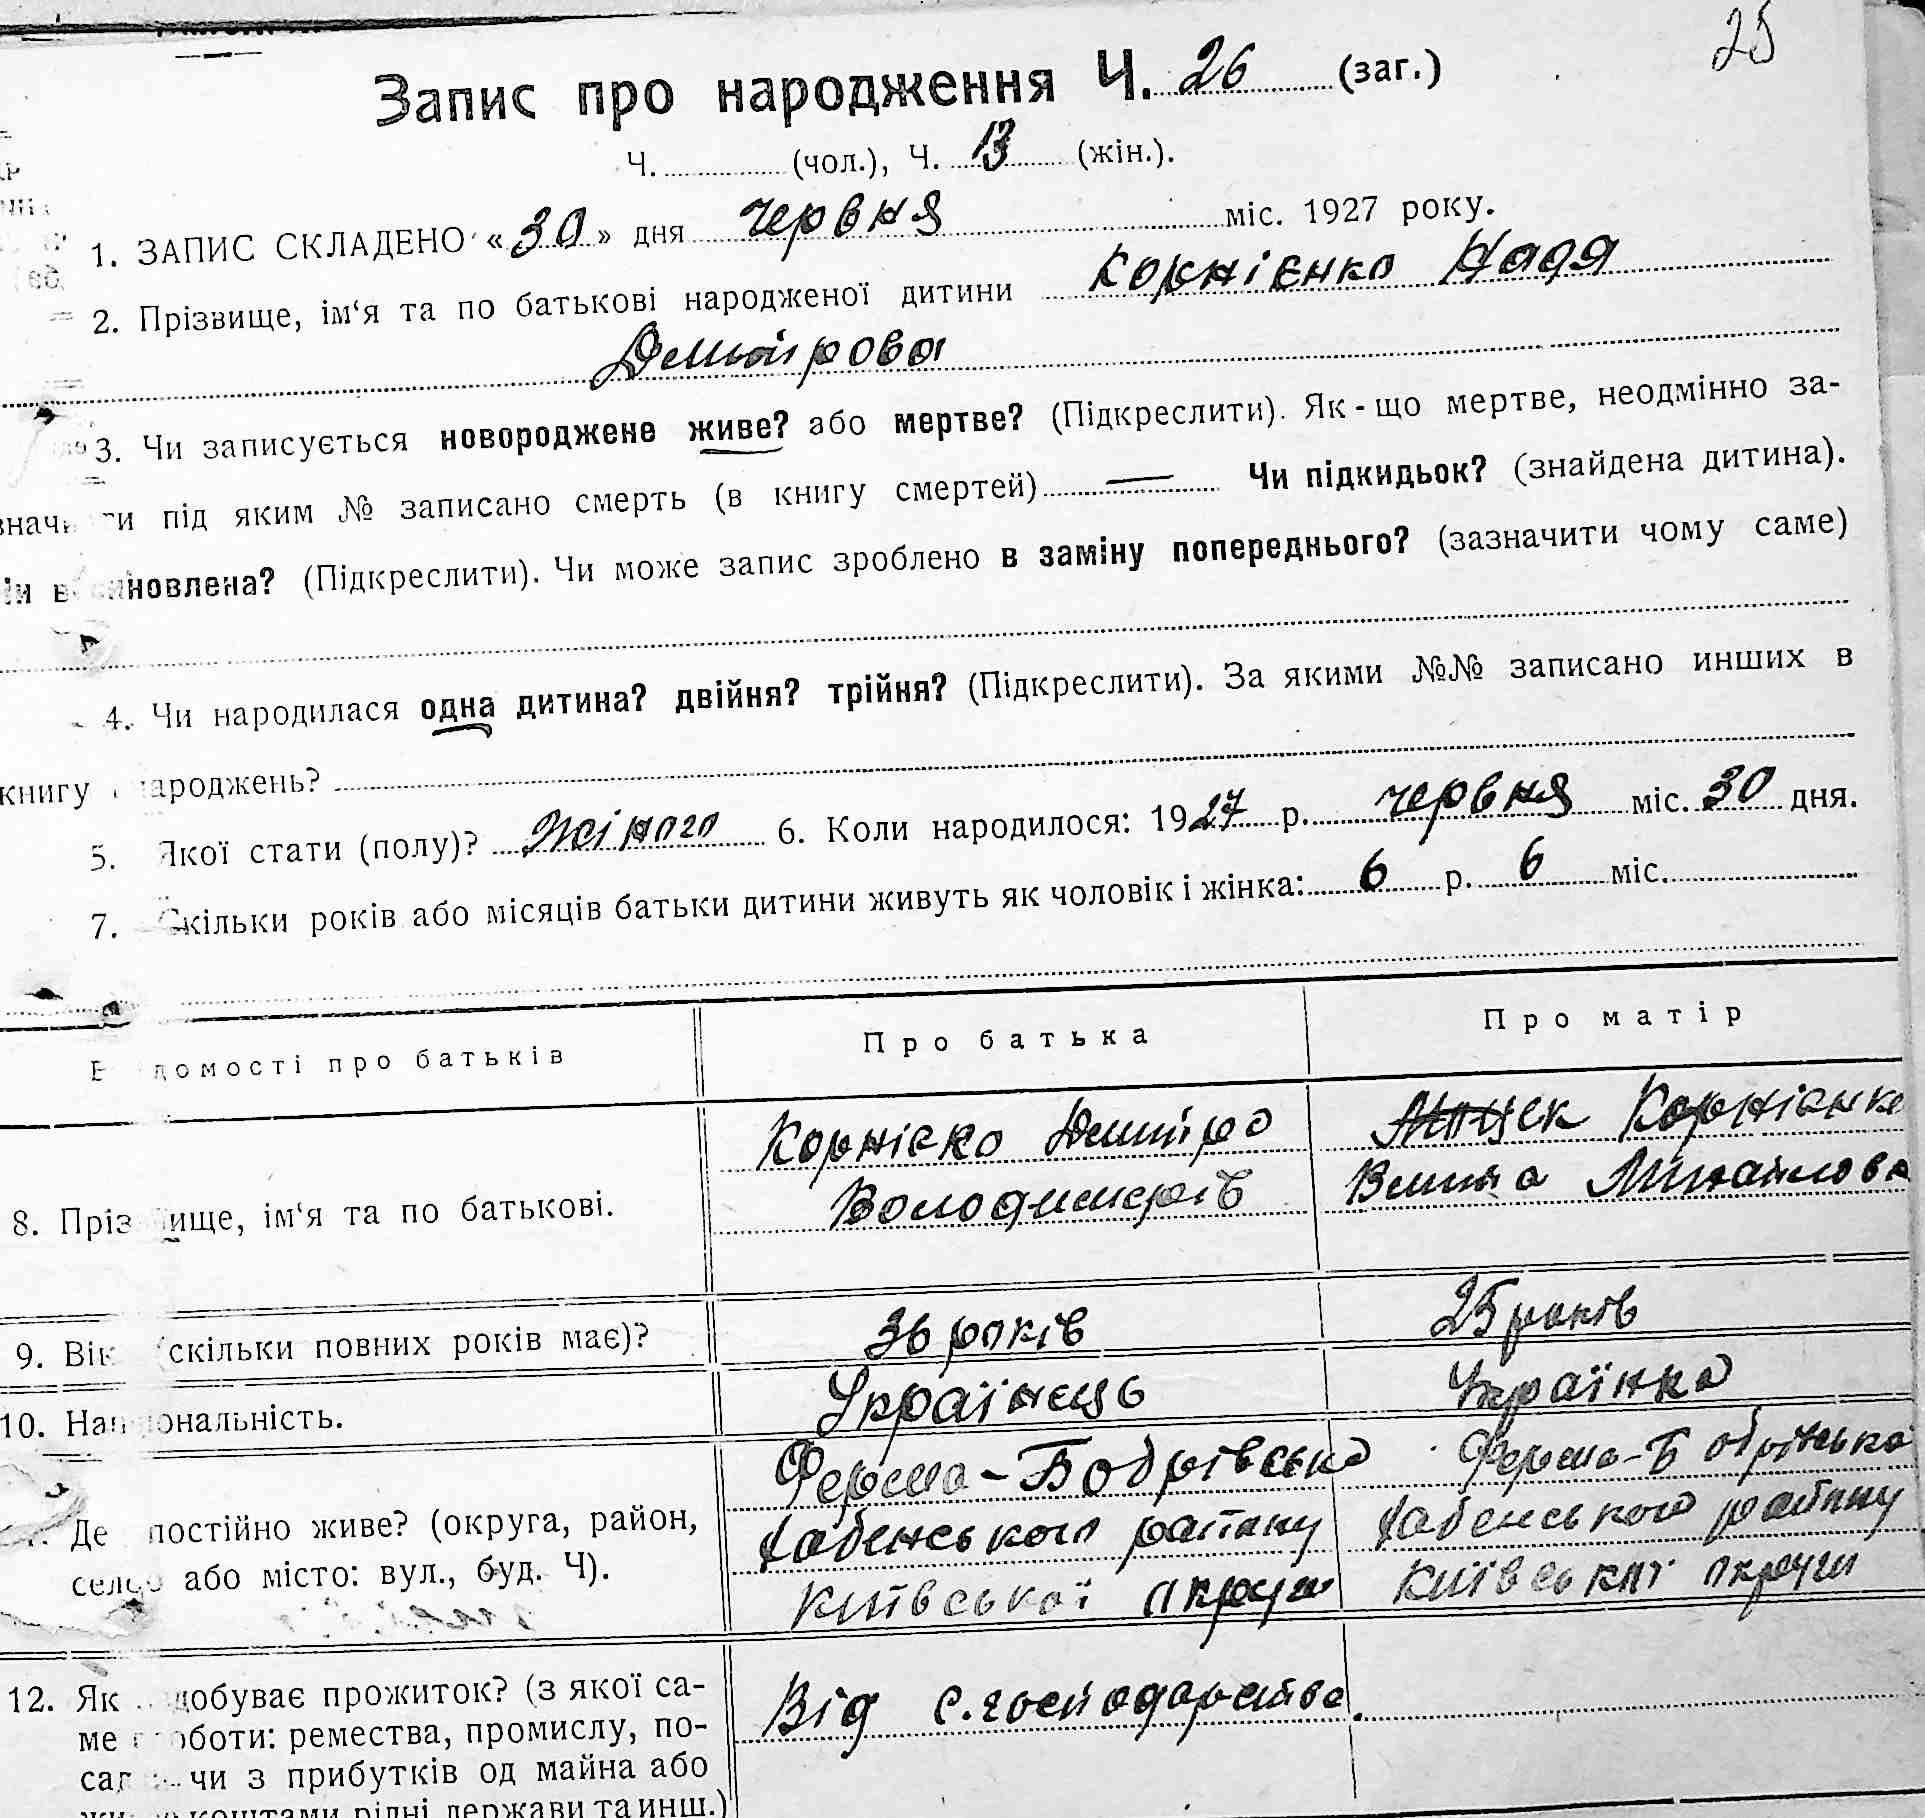 25
Запис про народження Ч. 26 (заг.)
Ч. (чол.), Ч. 13 (жін.).
1. ЗАПИС СКЛАДЕНО «30» дня червня міс. 1927 року.
2. Прізвище, ім‘я та по батькові народженої дитини Корнієнко Надя
Дмитрова
3. Чи записується новороджене живе? або мертве? (Підкреслити). Як-що мертве, неодмінно за-
значити під яким № записано смерть (в книгу смертей) — Чи підкидьок? (знайдена дитина).
Чи всиновлена? (Підкреслити). Чи може запис зроблено в заміну попереднього? (зазначити чому саме)
4. Чи народилася одна дитина? двійня? трійня? (Підкреслити). За якими №№ записано инших в
книгу народжень?
5. Якої стати (полу)? Жіного 6. Коли народилося: 1927 р. червня міс. 30 дня.
7. Скільки років або місяців батьки дитини живуть як чоловік і жінка: 6 р. 6 міс.
Відомості про батьків Про батька Про матір
8. Прізвище, ім‘я та по батькові. Корнієко Дмитро Корнієнко
Володимерів Михайлова
9. Вік (скільки повних років має)? 36 років 25 років
10. Національність. Українець Українка
Ферма-Бобрівська Ферма-Бобрівська
Де постійно живе? (округа, район, Хабенського району Хабенського району
село або місто: вул., буд. Ч). Київської округи Київської округи
12. Як здобуває прожиток? (з якої са- Від с. господарства.
ме роботи: ремества, промислу, по-
сади чи з прибутків од майна або
коштами рідні держави та инш.)